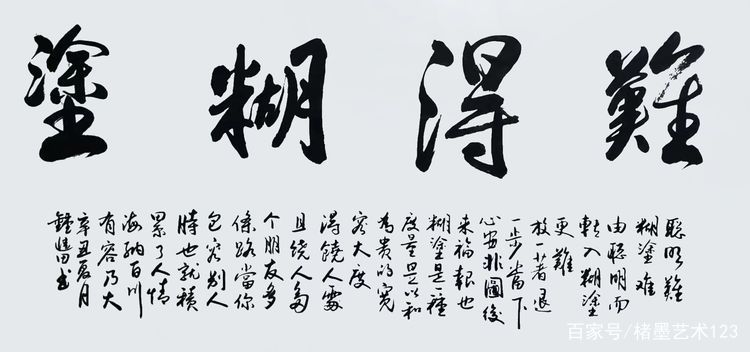 難得糊塗
聪明難
糊塗难
由聰明而
轉入糊塗
更難
放一著退
一步當下
心安非圖後
来福報也
糊塗是一種
度量是以和
為貴的寬
容大度
得饒人處
且饒人多
个朋友多
條路當你
包容别人
時也就積
累了人情
海納百川
有容乃大
辛丑夏月
书
百家号/楮墨艺术123